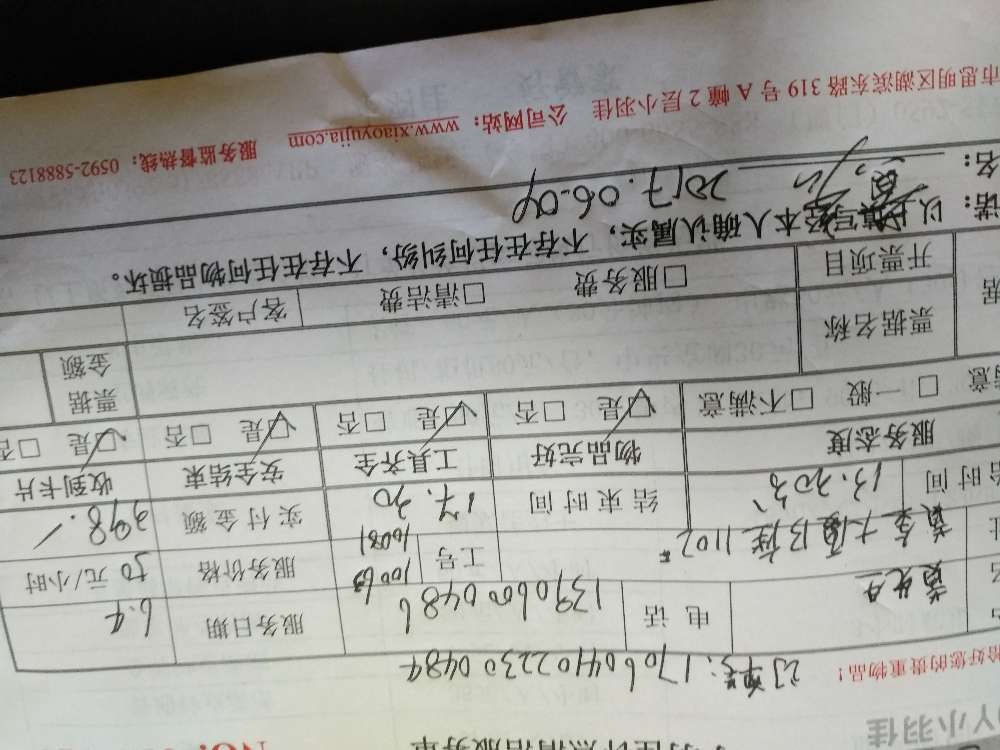 小羽佳
NO.
恰好您的贵重物品！
订单号：17060441022300484
黄先生 电话 13906000486 服务日期 6.4
工号 10063 10081 服务价格 50 元/小时
时间 13.20 结束时间 17.20 实付金额 398.
服务态度 物品完好 工具齐全 安全结束 收到卡片
意 □一般 □不满意 ☑是 □否 ☑是 □否 ☑是 □否 ☑是 □否
据 票据名称 票据金额
开票项目 □服务费 □清洁费 客户签名
诺：以上填写经本人确认属实，不存在任何纠纷，不存在任何物品损坏。
名： 2017.06.04
市思明区湖滨东路 319 号 A 幢 2 层小羽佳 公司网站：www.xiaoyujia.com 服务监督热线：0592-5888123